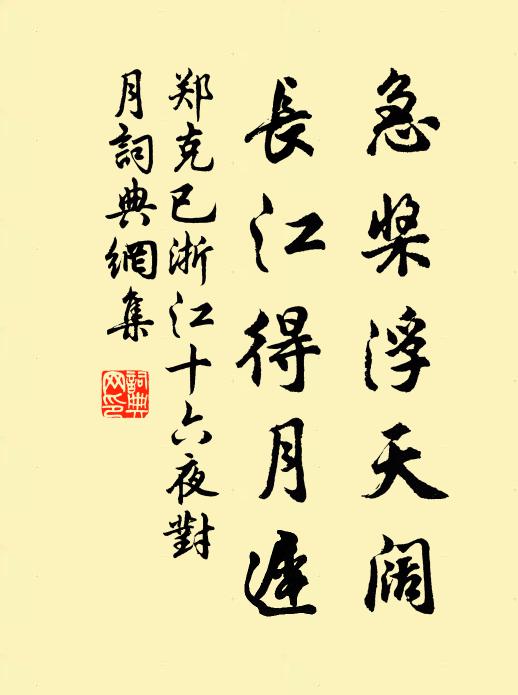 急桨浮天阔
長江得月遲
郑克已浙江十六夜對
月詞典網集
詞典网印